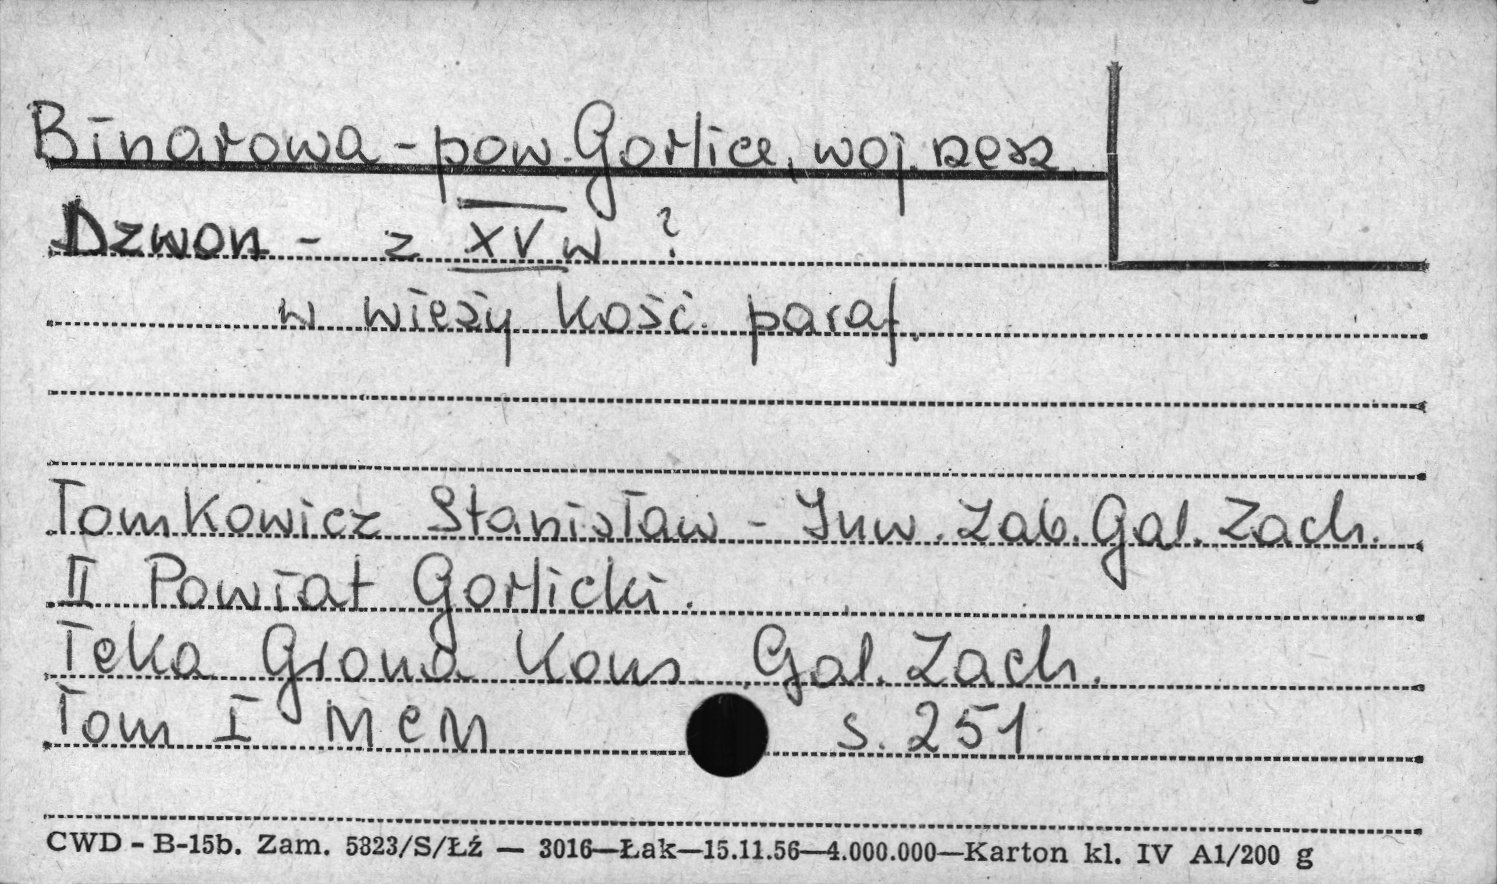 Binarowa - pow. Gorlice, woj. rzesz
Dzwon - z XV w ?
w wieży kość. paraf.
Tomkowicz Stanisław - Inw. Zab. Gal. Zach.
II Powiat Gorlicki.
Teka Grona Kons. Gal. Zach.
Tom I MCM s. 251
CWD - B-15b. Zam. 5823/S/Łź — 3016—Łak—15.11.56—4.000.000—Karton kl. IV A1/200 g